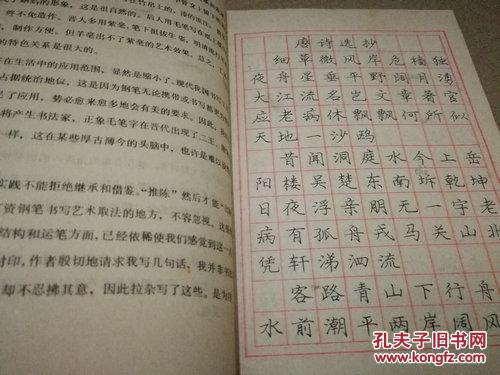 终不能改造。昔人多用紫毫,
制作方便。但羊毫出不了紫毫的艺术效果。总之,工
的特色关系是很大的。
在生活中的应用范围,显然是缩小了,现代我国书写
占据统治地位,这是因为钢笔无论携带或书写都
了应用,势必愈来愈多地会有美的要求。因此,
将产生书法家,正象毛笔字在晋代出现了二王,
一样,这在某些厚古薄今的头脑中,也许是难以设
实践不能拒绝继承和借鉴。“推陈”然后才能“出
资钢笔书写艺术取法的地方,不容忽视。这
结构和运笔方面,已经依稀使我们感觉到这一
付印,作者殷切地请求我写几句话,我并非书
却不忍拂其意,因此拉杂写了这些。是为
唐诗选抄
细草微风岸危樯独
夜舟星垂平野阔月涌
大江流名岂文章著官
应老病休飘飘何所似
天地一沙鸥
昔闻洞庭水今上岳
阳楼吴楚东南坼乾坤
日夜浮亲朋无一字老
病有孤舟戎马关山北
凭轩涕泗流
客路青山下行舟
水前潮平两岸阔风
孔夫子旧书网
www.kongfz.com